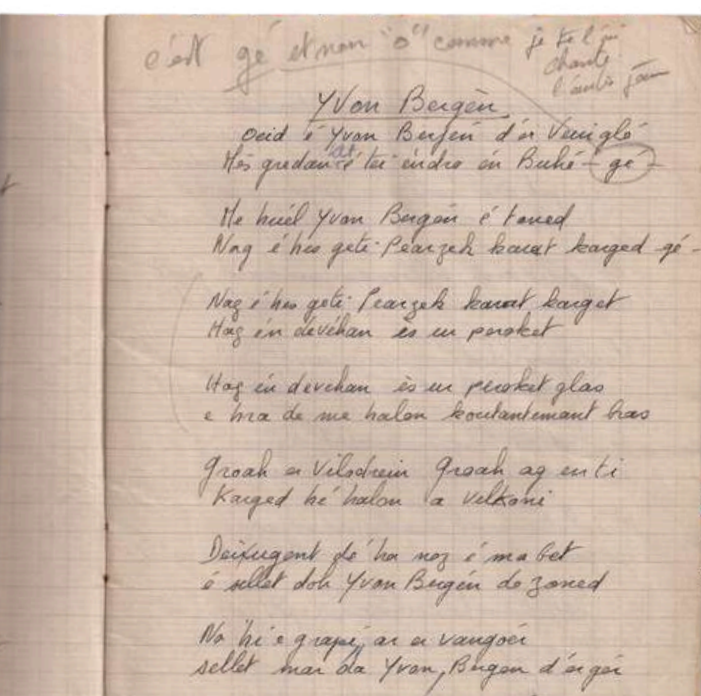 c'est gé et non "o" comme je te l'ai
chanté
l'autre jour
Yvon Bergèn
é Yvon Bergén d'er
Mès gredan é tei éndro én Buhé - gé -
Me huél Yvon Bergén é toned
Nag é hes geti Pearzek karat karged - gé -
Nag é hes geti Pearzek karat karget
Hag én devéhan ès ur peroket
Hag én devehan ès ur peroket glas
e hra de me halon koutantemant bras
Groah er Groah ag en ti
Karged hé halon a velkoni
dé ha noz é ma bet
é sellet doh Yvon Bergén de zoned
Na hi e grapé, ar er
sellet mar da Yvon, Bergen d'er gér